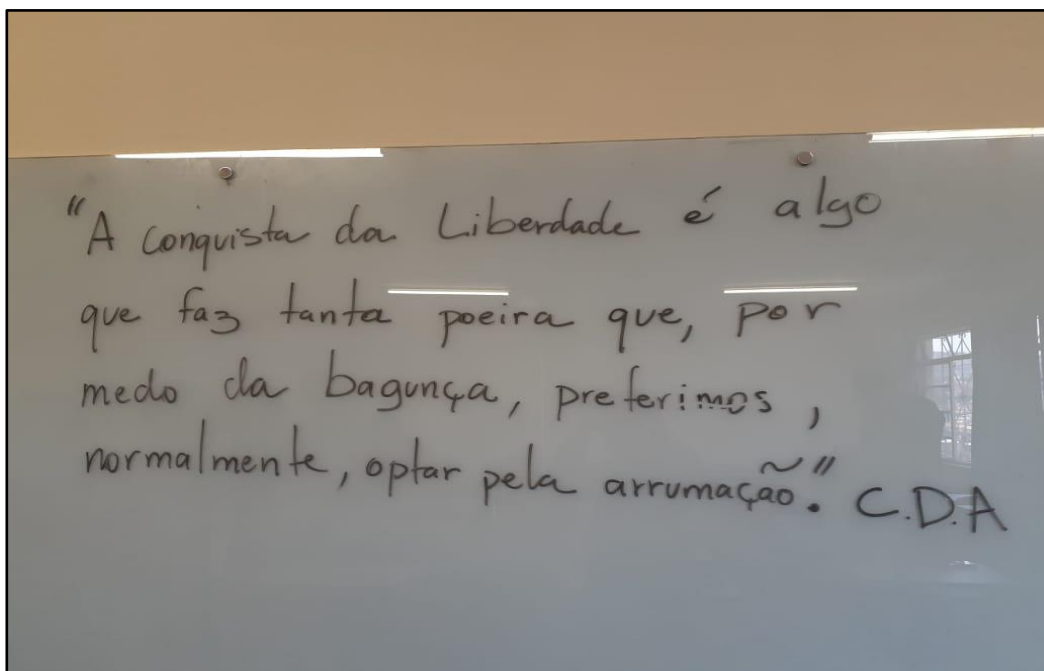 "A conquista da Liberdade é algo
que faz tanta poeira que, por
medo da bagunça, preferimos,
normalmente, optar pela arrumação." C.D.A